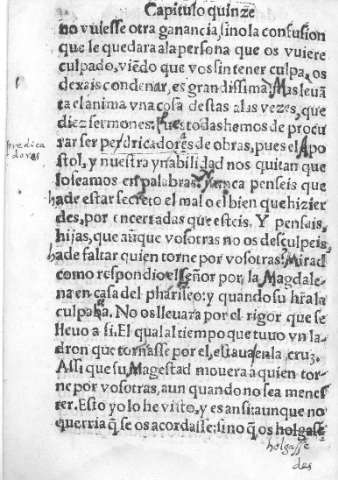 Capitulo quinze
no vuiesse otra ganancia, sino la confusion
que le quedara ala persona que os vuiere
culpado, viẽdo que vos sin tener culpa, os
dexais condenar, es grandissima. Mas leuã
ta el anima vna cosa destas alas vezes, que
diez sermones. Pues todas hemos de procu
rar ser predicadores de obras, pues el Apo
stol, y nuestra ynabilidad nos quitan que
predica
dores
lo seamos en palabras. Nunca penseis que
ha de estar secreto el mal o el bien que hizier
des, por encerradas que esteis. Y pensais,
hijas, que aũque vosotras no os desculpeis,
ha de faltar quien torne por vosotras? Mirad
como respondio el Señor por la Magdale
na en casa del phariseo: y quando su hr̃a la
culpaba. No os lleuara por el rigor que se
lleuo a si. El qual al tiempo que tuuo vn la
dron que tornasse por el, estaua en la cruz.
Assi que su Magestad mouera a quien tor-
ne por vosotras, aun quando no sea menes
ter. Esto yo lo he visto, y es ansi: aunque no
querria q̃ se os acordasse: sino q̃ os holgasse
holgasse
des